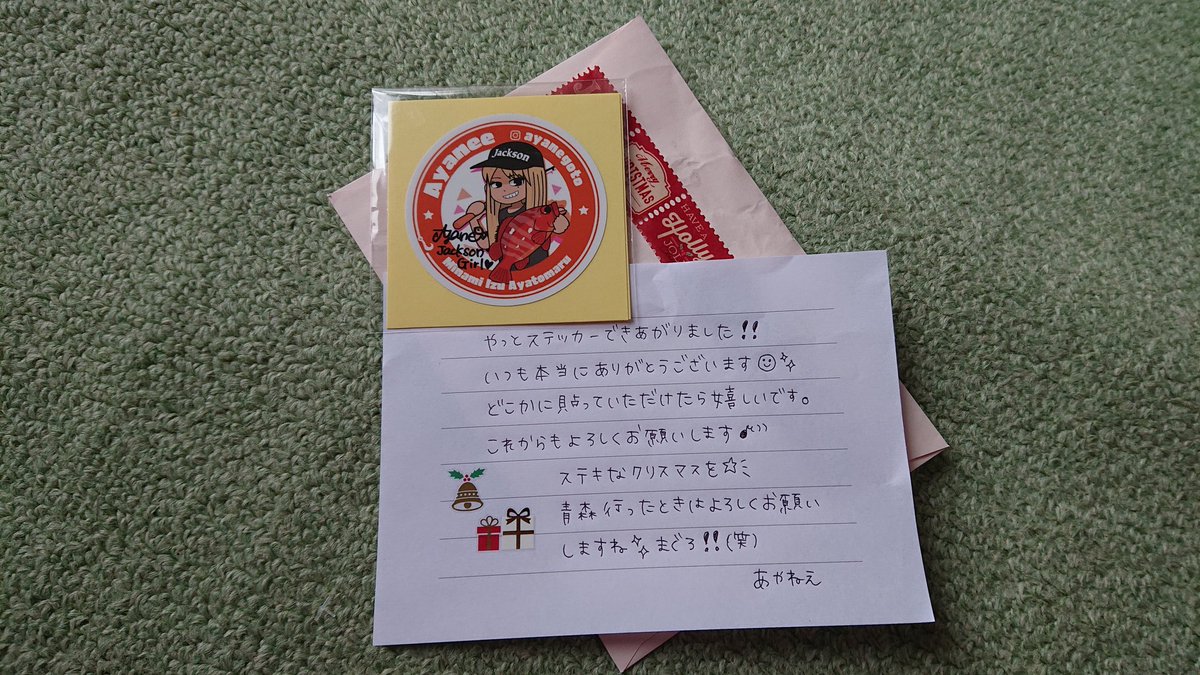 Ayanee
ayanegoto
Jackson
Ayane
Jackson
Girl♥
Minami Izu Ayatomaru
Merry
CHRISTMAS
HAVE A
Holly
JO
やっとステッカーできあがりました!!
いつも本当にありがとうございます
どこかに貼っていただけたら嬉しいです。
これからもよろしくお願いします
ステキなクリスマスを☆
青森行ったときはよろしくお願い
しますね まぐろ!!(笑)
あやねえ